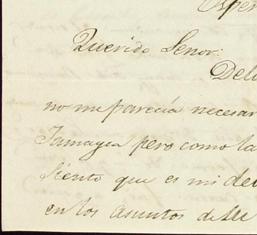 Querido Senor:
no me parecia necesar
Jamayca pero como la
siento que es mi de
en los asuntos de su